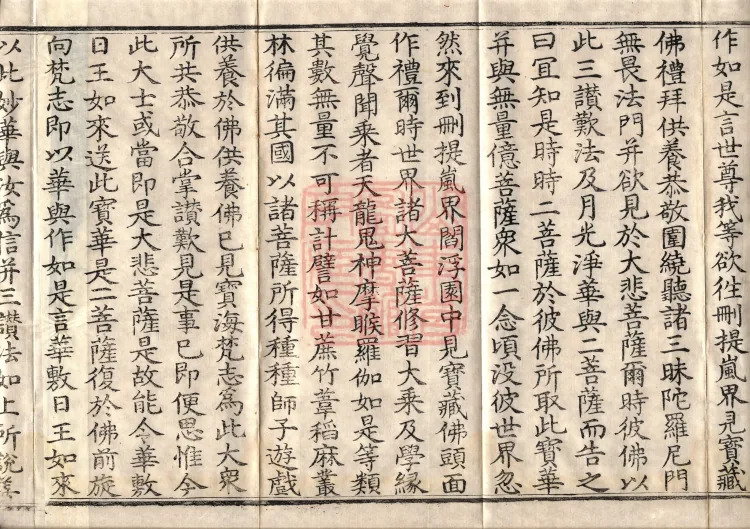 作如是言世尊我等欲往刪提嵐界見寶藏
佛禮拜供養恭敬圍繞聽諸三昧陀羅尼門
無畏法門并欲見於大悲菩薩爾時彼佛以
此三讃歎法及月光淨華與二菩薩而告之
曰宜知是時時二菩薩於彼佛所取此寶華
并與無量億菩薩衆如一念頃没彼世界忽
然來到刪提嵐界閻浮園中見寶藏佛頭面
作禮爾時世界諸大菩薩修習大乘及學緣
覺聲聞乘者天龍鬼神摩睺羅伽如是等類
其數無量不可稱計譬如甘蔗竹葦稻麻叢
林徧滿其國以諸菩薩所得種種師子遊戲
供養於佛供養佛已見寶海梵志爲此大衆
所共恭敬合掌讃歎見是事已即便思惟今
此大士或當即是大悲菩薩是故能令華敷
日王如來送此寶華是二菩薩復於佛前旋
向梵志即以華與作如是言華敷日王如來
以此妙華與汝爲信并三讃法如上所說